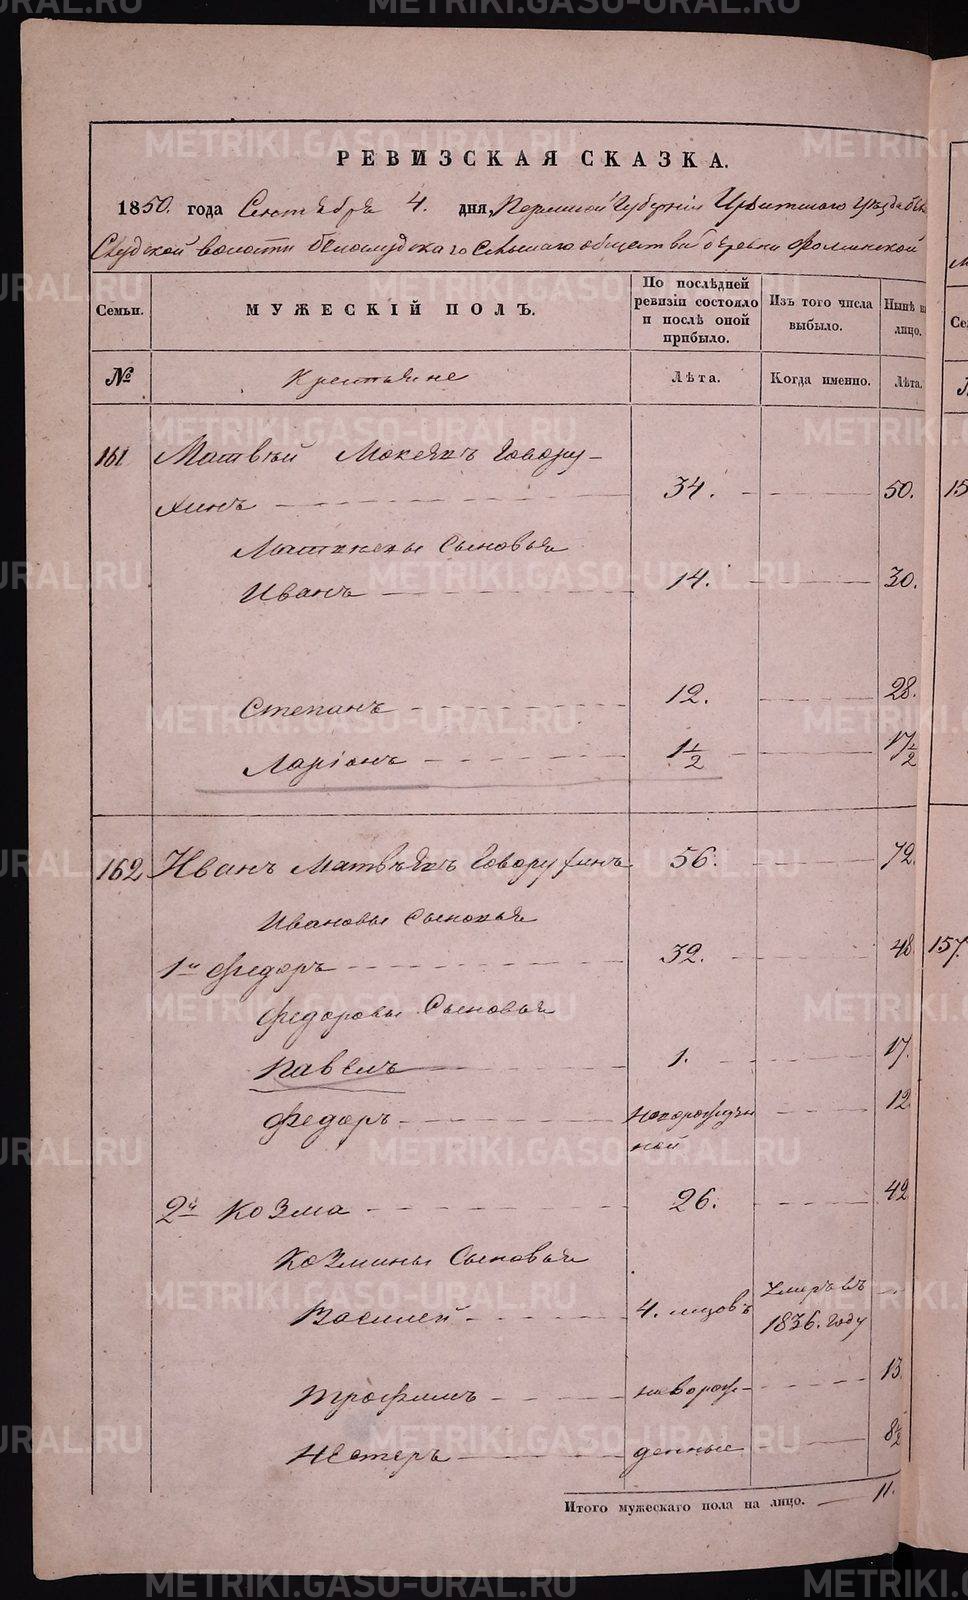 РЕВИЗСКАЯ СКАЗКА.
1850. года Сентября 4. дня, Пермской Губернии Ирбитскаго Уѣзда Бѣло
Слудской волости Белослудскаго сельскаго общества деревни Фоминской
Семьи. МУЖЕСКІЙ ПОЛЪ. По послѣдней ревизіи состояло и послѣ оной прибыло. Изъ того числа выбыло. Нынѣ на лицо.
№ Крестьяне Лѣта. Когда именно. Лѣта.
161 Матвѣй Мокеевъ Говору-
хинъ 34. 50.
Матвеевы Сыновья
Иванъ 14. 30.
Степанъ 12. 28.
Ларіонъ 1 1/2 17 1/2
162 Иванъ Матвѣевъ Говорухинъ 56. 72.
Ивановы Сыновья
1й Федоръ 32. 48.
Федоровы Сыновья
Павелъ 1. 17.
Федоръ новорожден 12
ной
2й Козма 26. 42
Козмины Сыновья
Василей 4. месцовъ Умеръ въ
1836. году
Трофимъ новорож- 13.
Нестеръ денные 8 1/2
Итого мужескаго пола на лицо. 11.
15
157.
METRIKI.GASO-URAL.RU